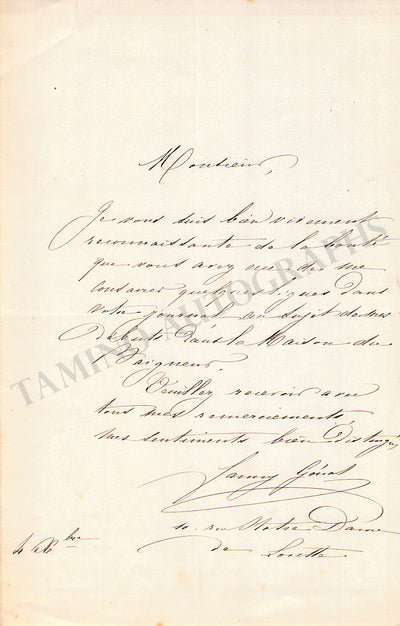 Monsieur,
Je vous suis bien vivement
reconnaissante de la bonté
que vous avez eue de me
consacrer quelques lignes dans
votre journal au sujet de mes
débuts dans la Maison du
Baigneur.
Veuillez recevoir avec
tous mes remerciements,
mes sentiments bien distingués
Fanny Génat
10. rue Notre Dame
de Lorette
4 Xbre
TAMINO AUTOGRAPHS